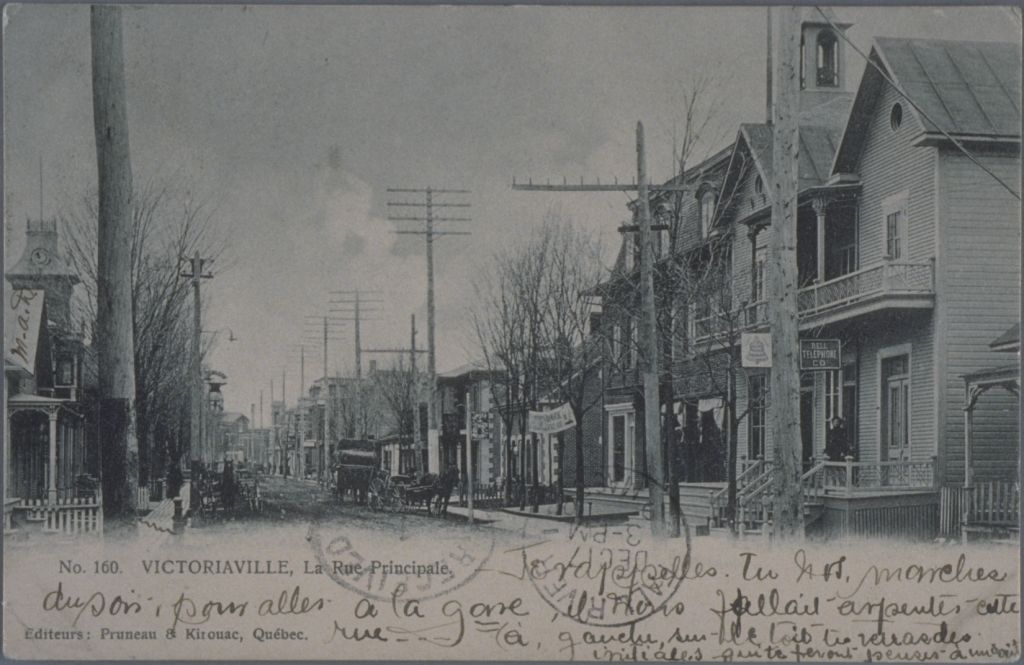 m-a.R.
BELL
TELEPHONE
CO
No. 160. VICTORIAVILLE, La Rue Principale.
RECEIVED
3-PM
DEC 17
Te rappelles. Tu Nos, marches
du soir, pour aller à la gare, il nous fallait arpenter cette
Editeurs: Pruneau & Kirouac, Québec.
rue à, gauche, sur le toit tu verras des
initiales qui te feront penser à